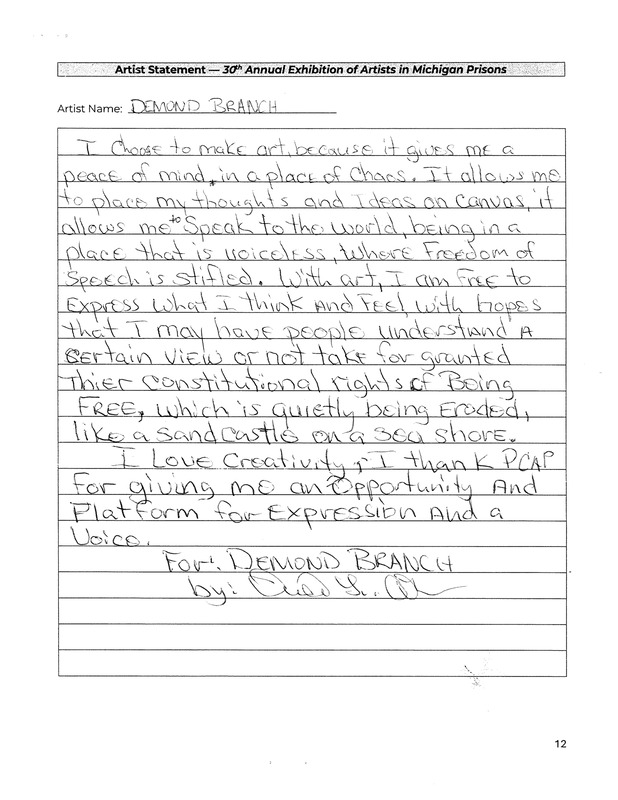 Artist Statement — 30th Annual Exhibition of Artists in Michigan Prisons
Artist Name: DEMOND BRANCH
I Choose to make art, because it gives me a
peace of mind, in a place of Chaos. It allows me
to place my thoughts and Ideas on Canvas, it
allows me to Speak to the world, being in a
place that is voiceless, Where Freedom of
Speech is stifled. With art, I am Free to
Express What I think And Feel, with hopes
that I may have people understand A
Certain View or not take for granted
Thier Constitutional rights of Being
FREE, which is quietly being Eroded,
like a Sand Castle on a Sea Shore.
I Love Creativity, I thank PCAP
For giving me an Opportunity And
Platform for Expression And a
Voice.
For: DEMOND BRANCH
by:
12